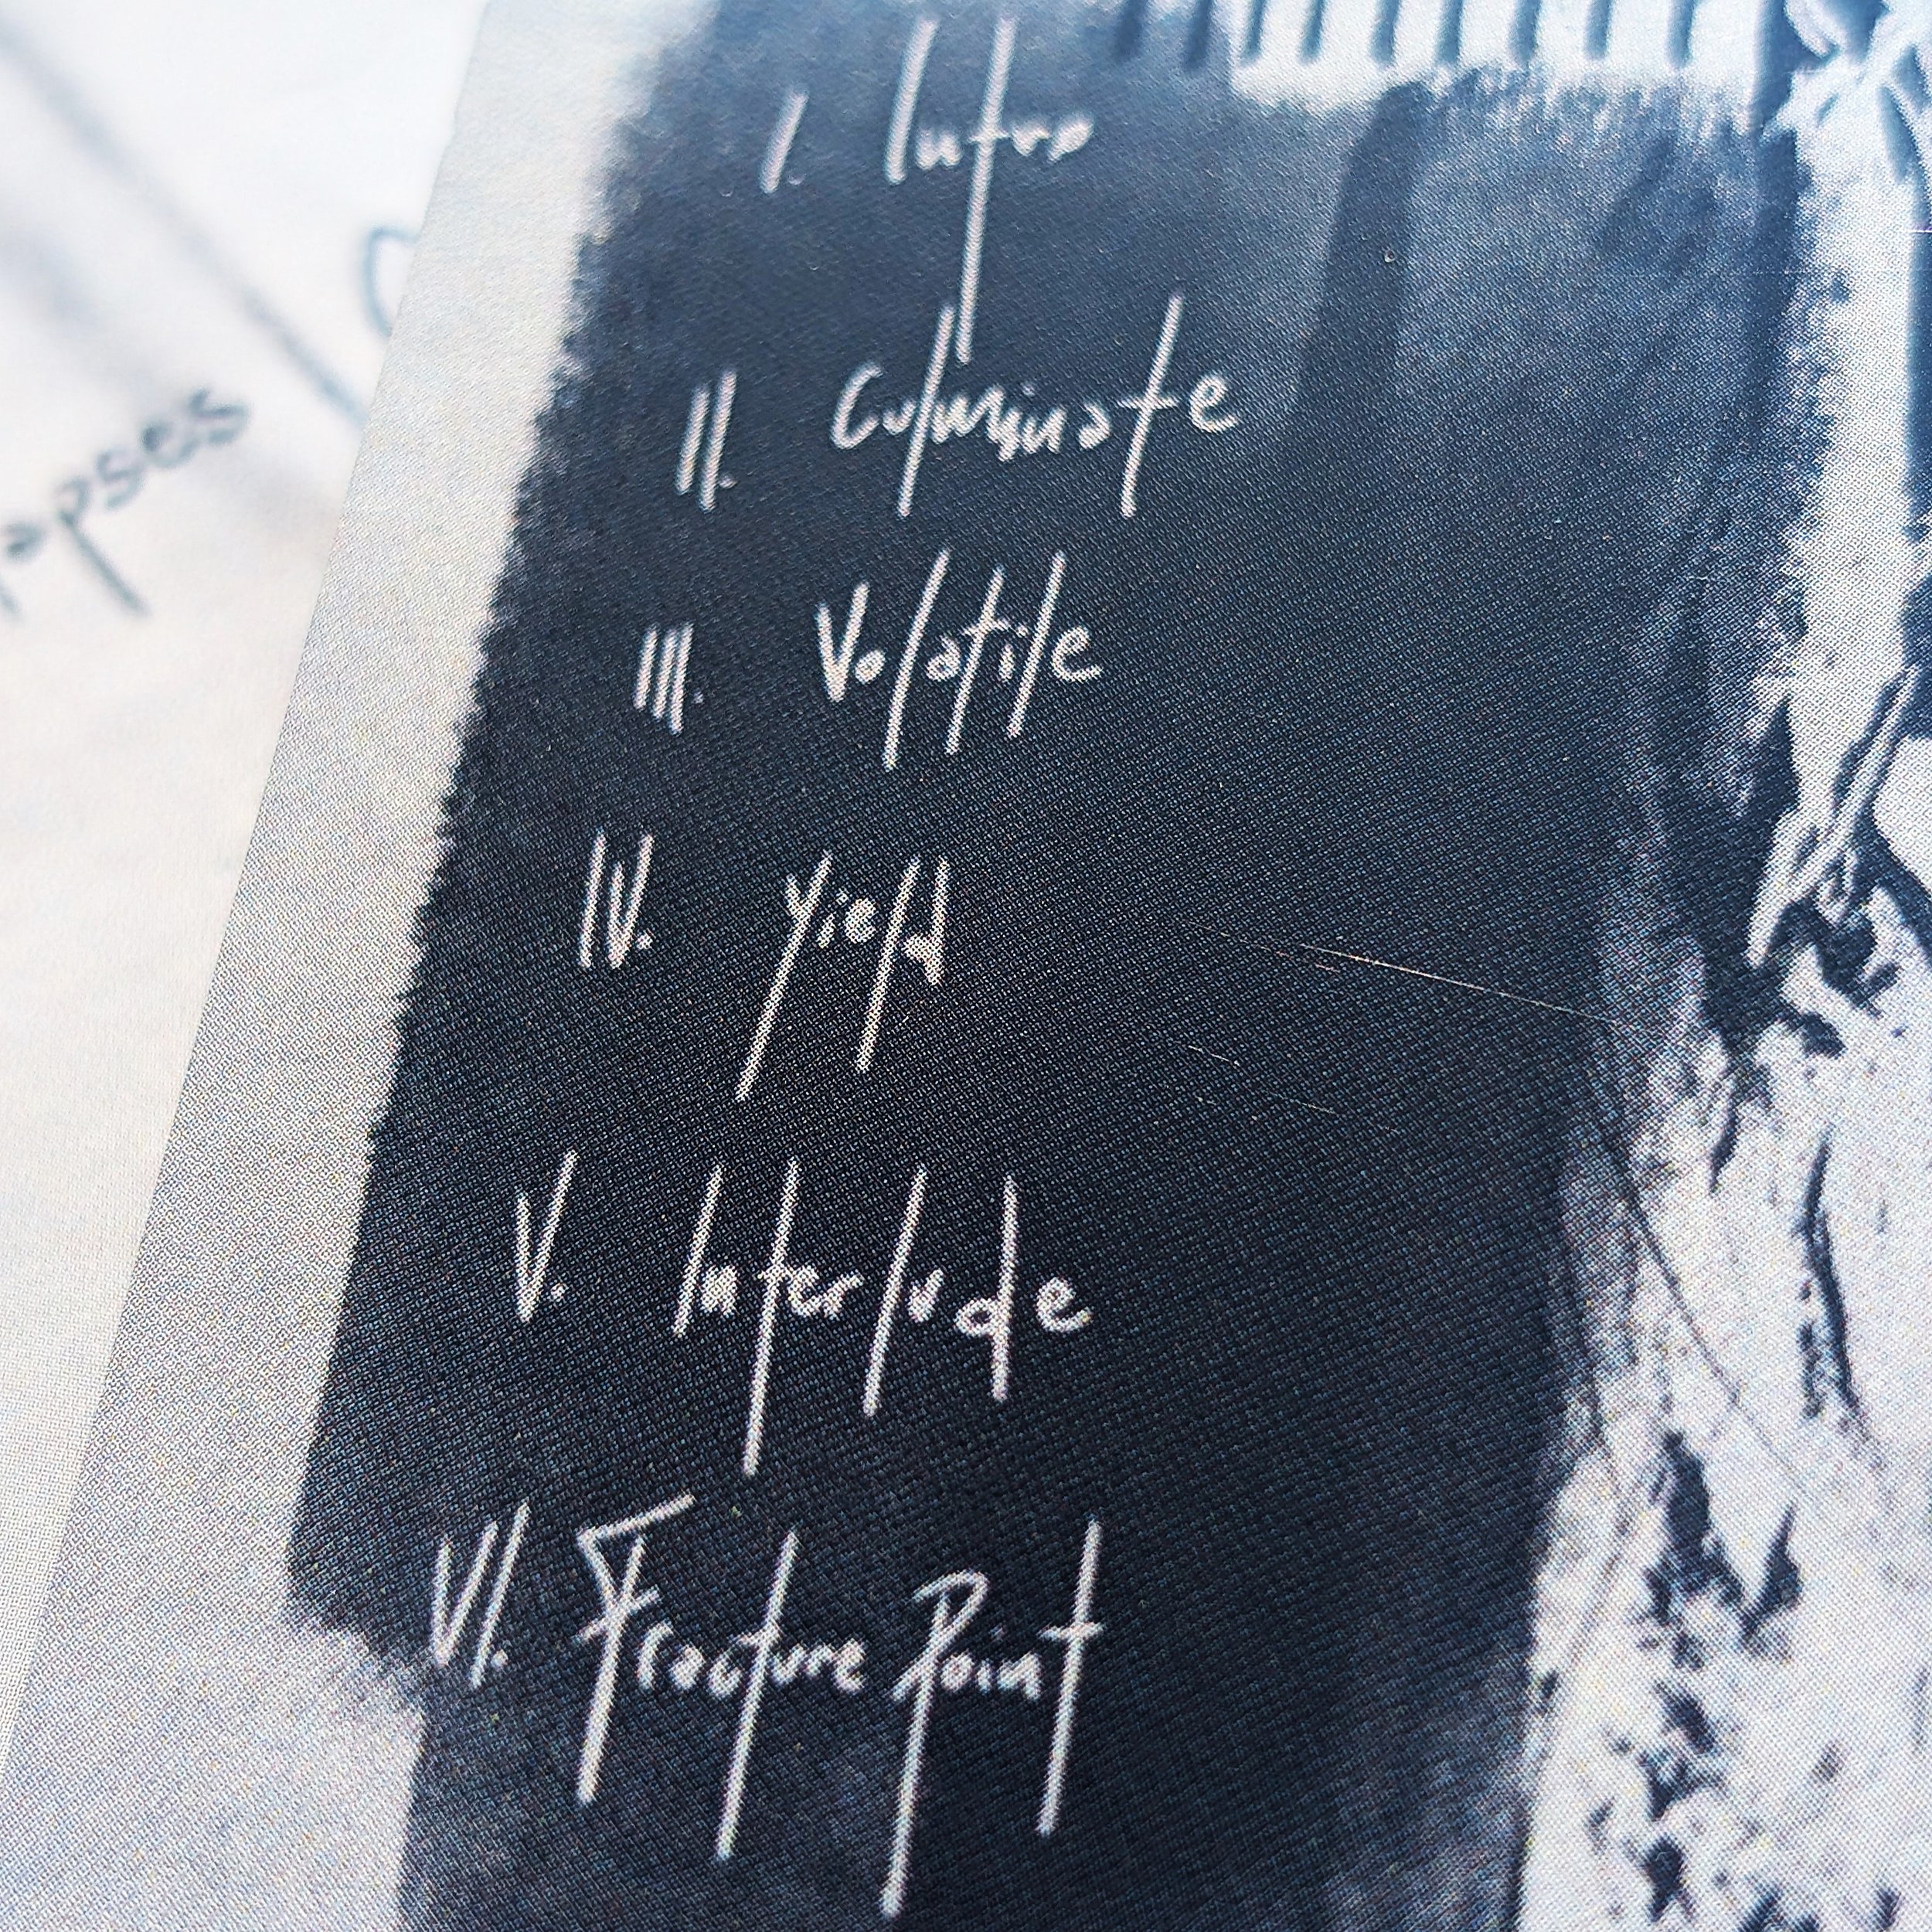 I. Intro
II. Culminate
III. Volatile
IV. Yield
V. Interlude
VI. Fracture Point